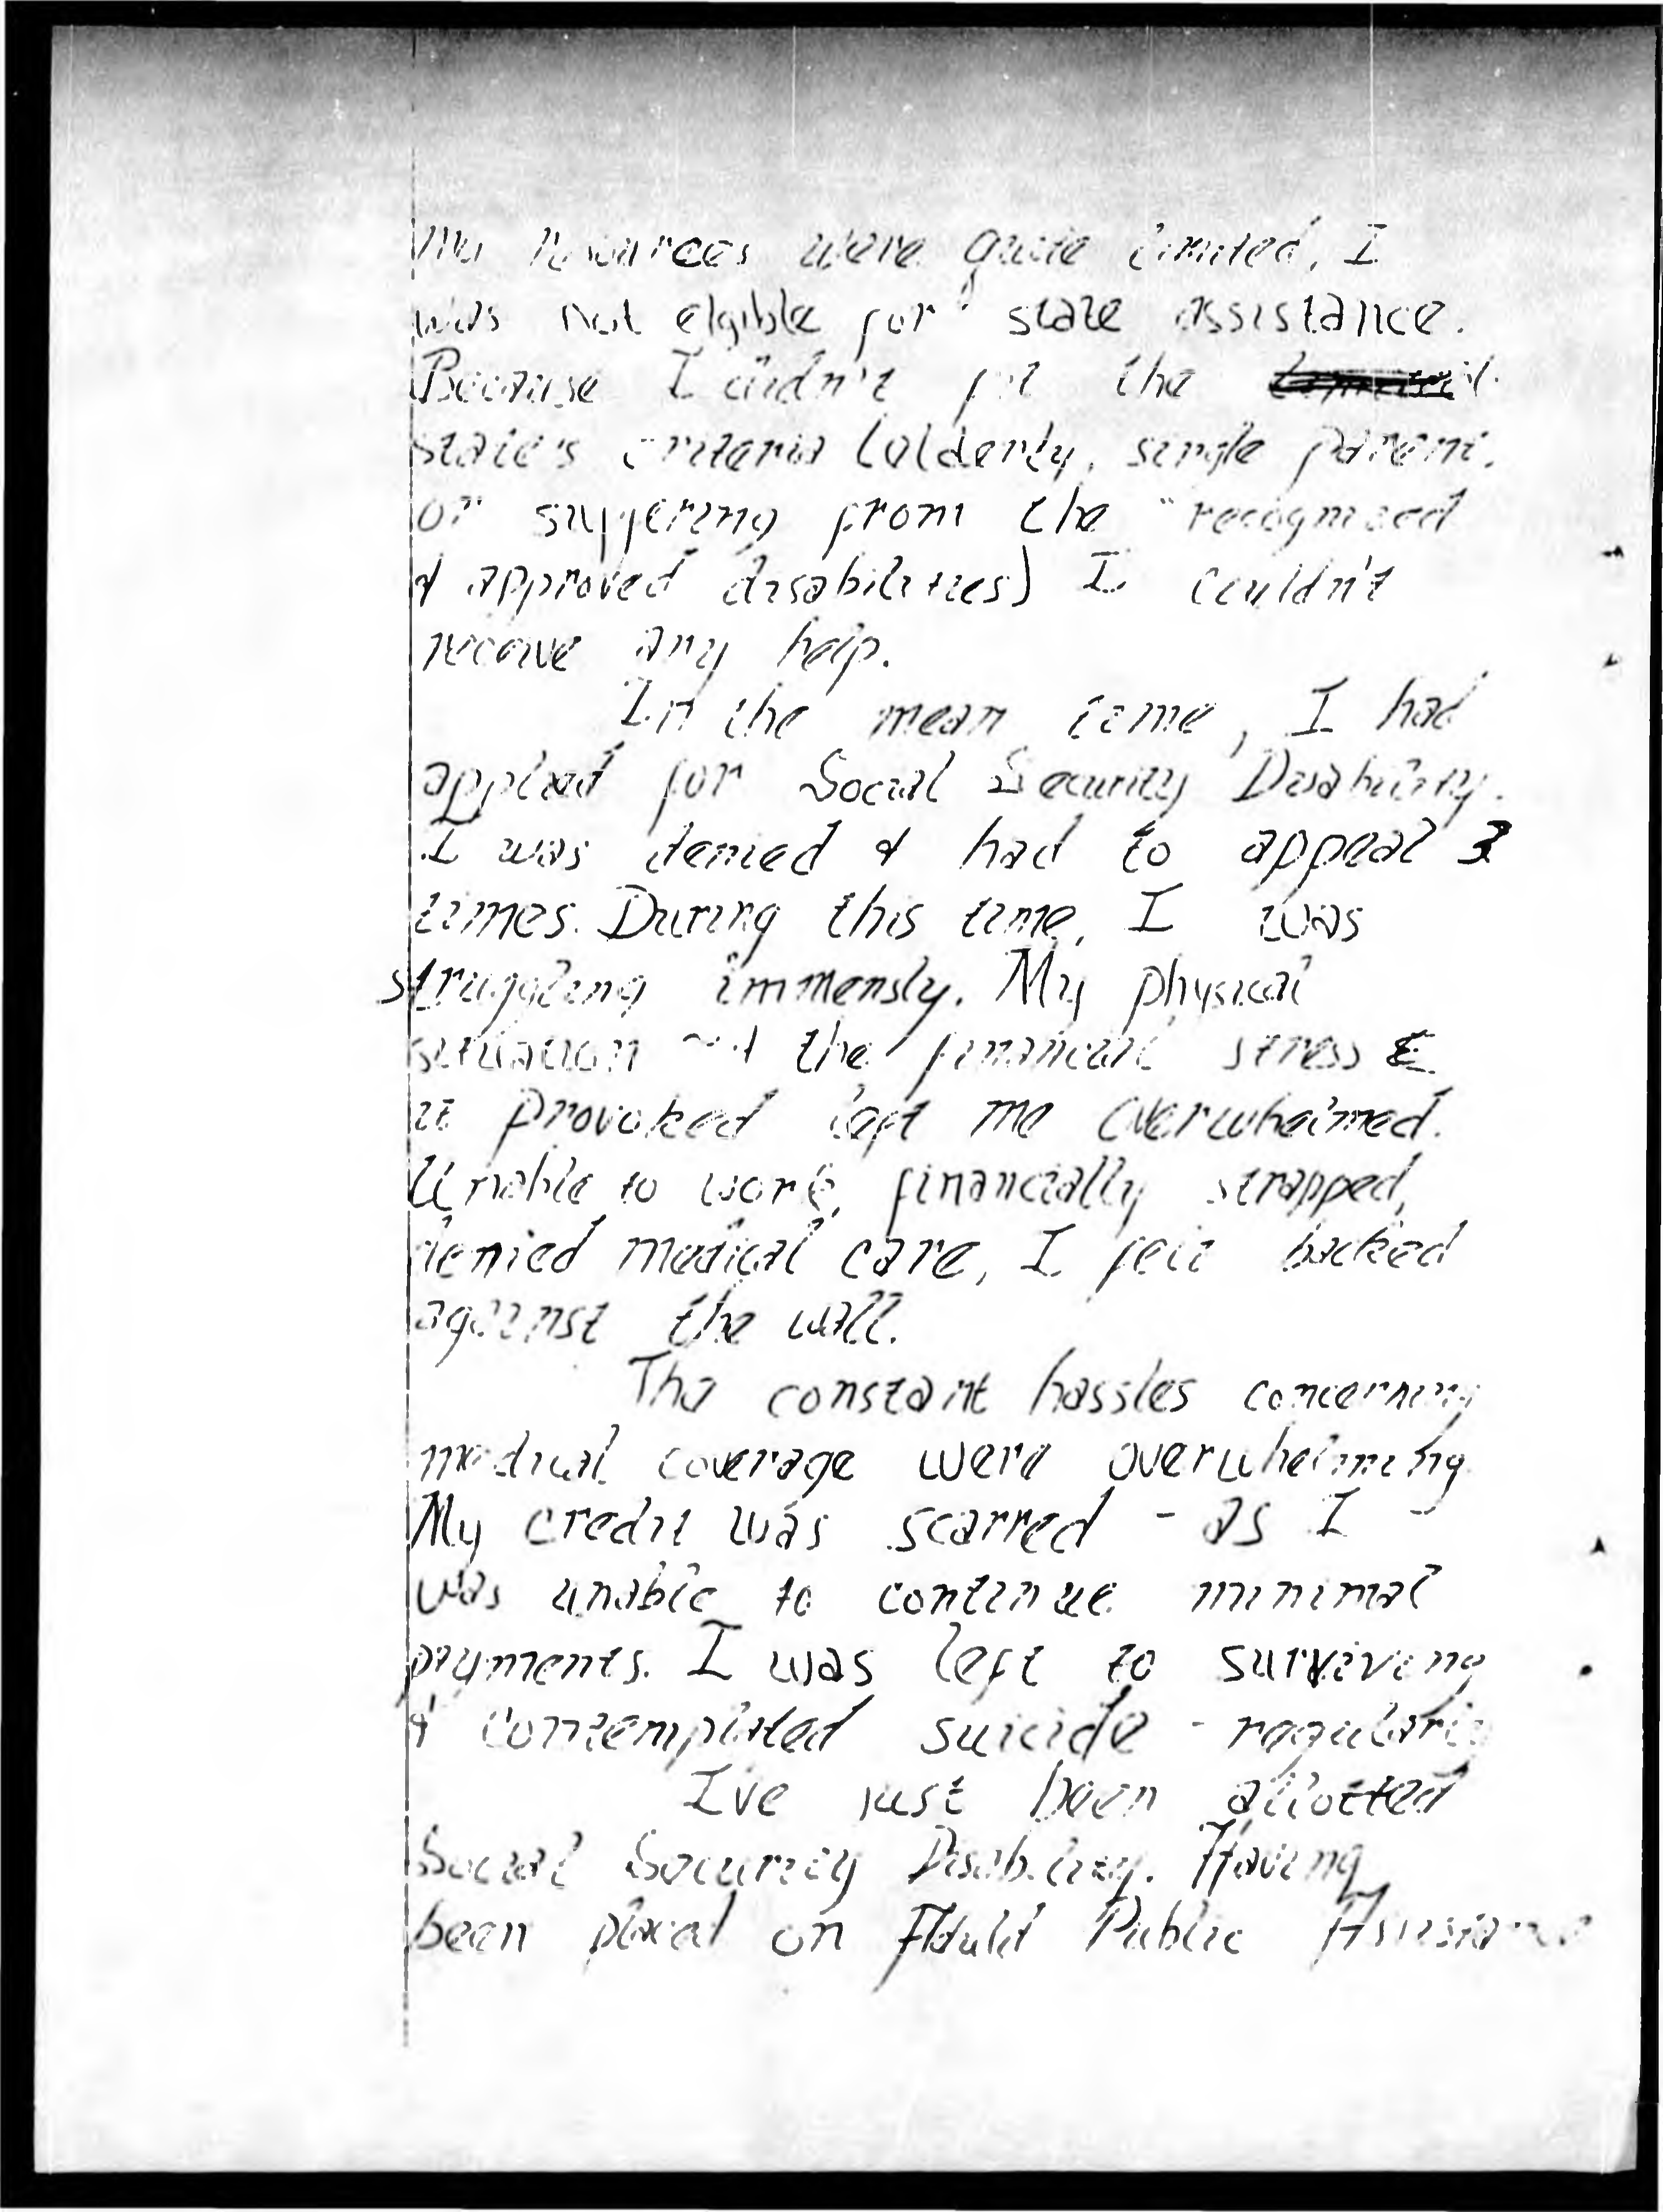 my resources were quite limited, I
was not elgible for state assistance.
Because I didn't fit the
state's criteria (elderly, single parent,
or suffering from the "recognized
& approved disabilities) I couldn't
receive any help.
In the mean time, I had
applied for Social Security Disability.
I was denied & had to appeal 3
times. During this time, I was
struggling immensly. My physical
situation and the financial stress
it provoked left me overwhelmed.
Unable to work, financially strapped,
denied medical care, I felt backed
against the wall.
The constant hassles concerning
medical coverage were overwhelming
My credit was scarred - as I
was unable to continue minimal
payments. I was left to surviving
& contemplated suicide - regularly
I've just been allotted
Social Security Disability. Having
been placed on Adult Public Assistance